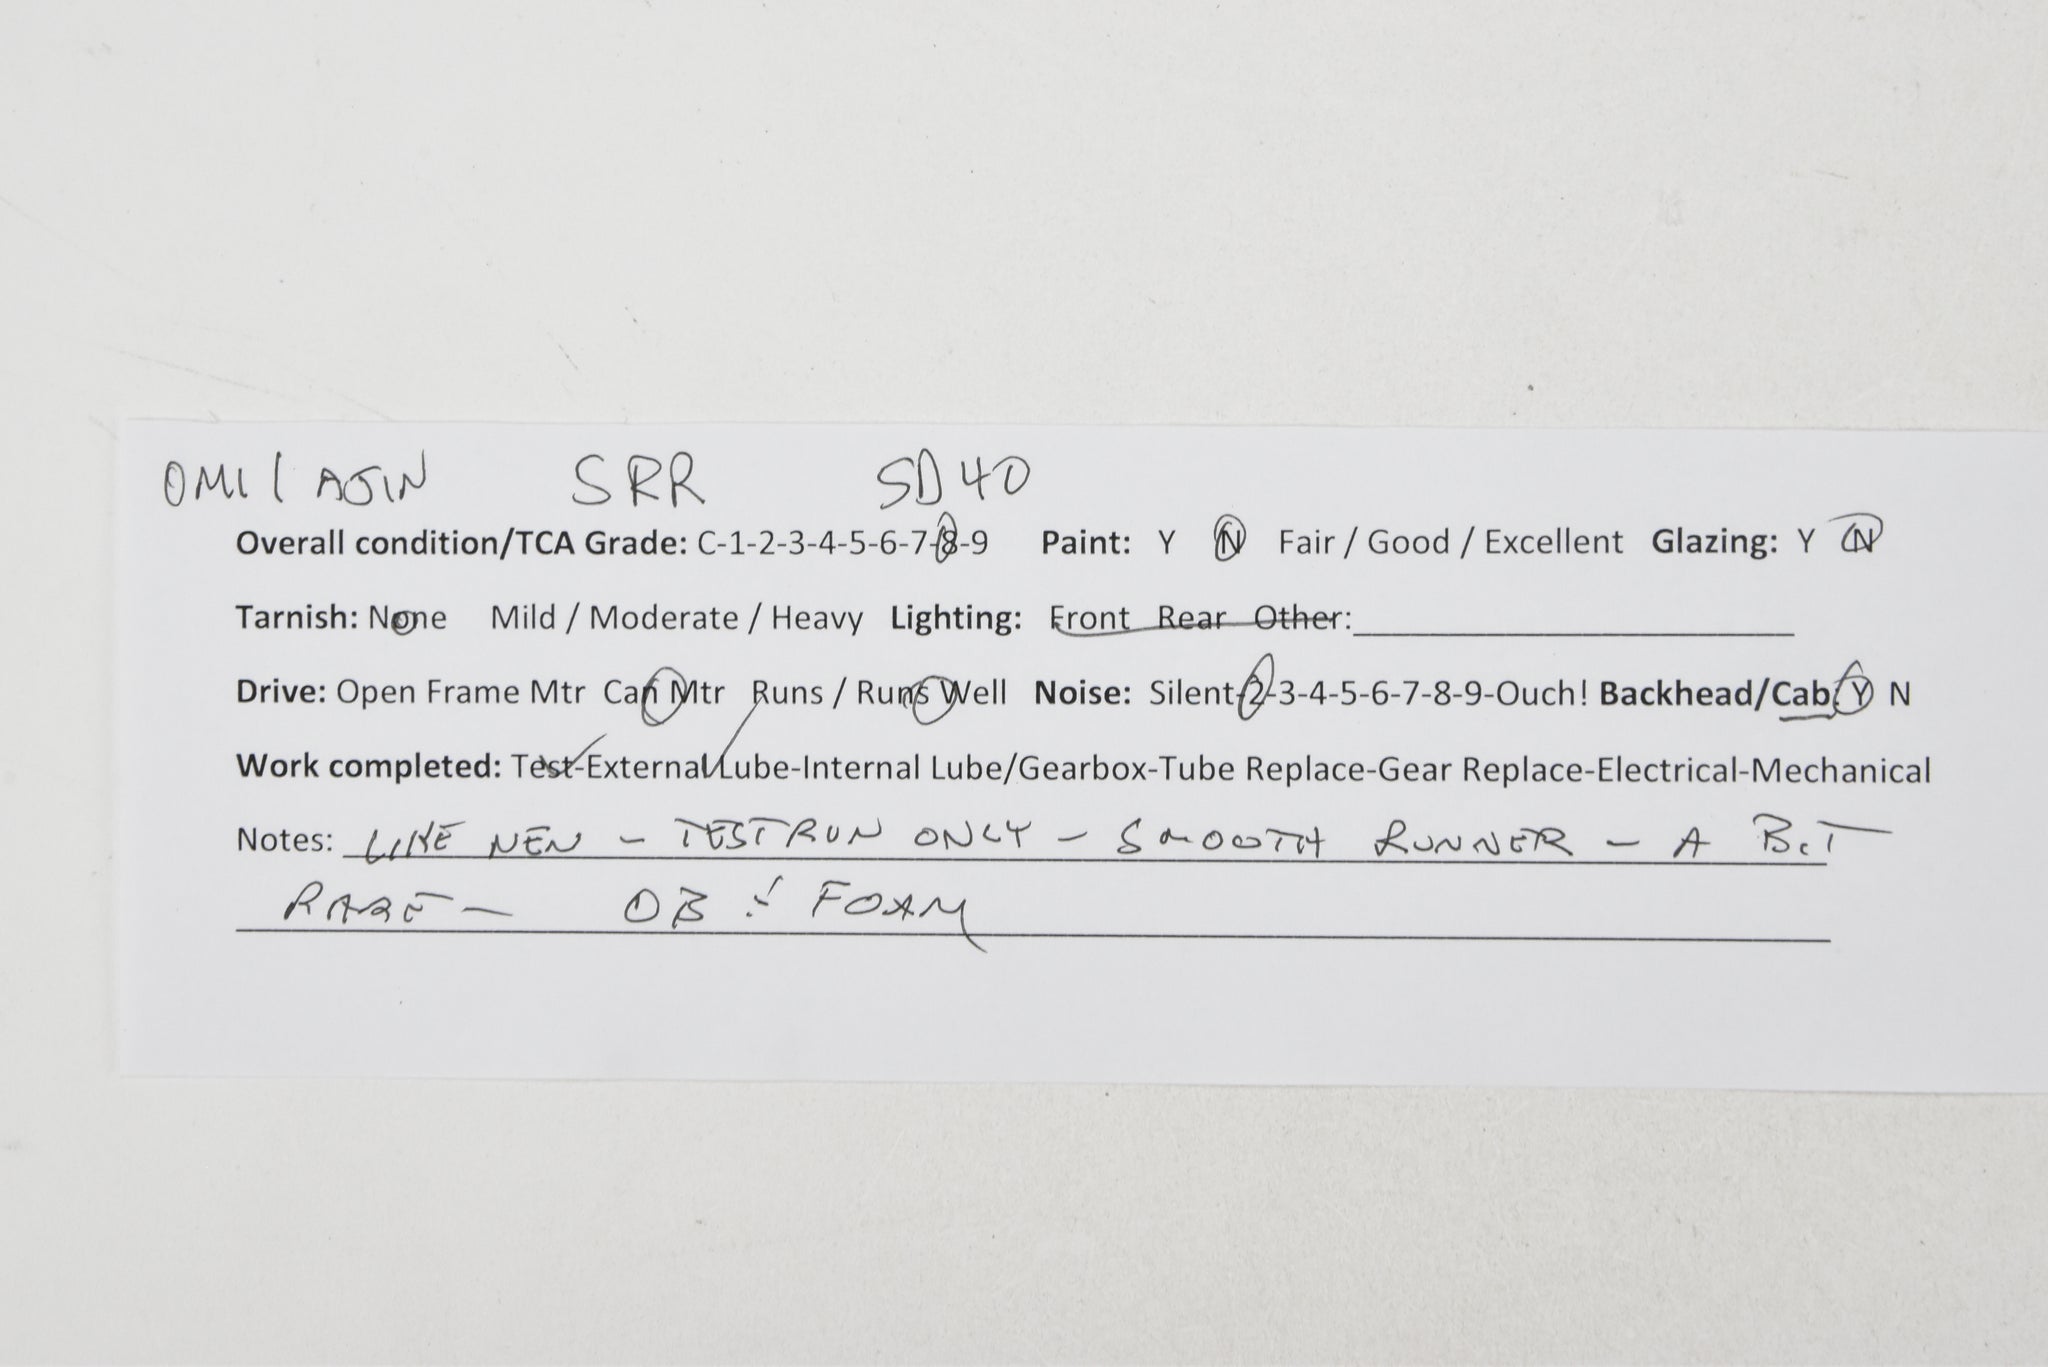 OMI / AJIN SRR SD40
Overall condition/TCA Grade: C-1-2-3-4-5-6-7-8-9 Paint: Y N Fair / Good / Excellent Glazing: Y N
Tarnish: None Mild / Moderate / Heavy Lighting: Front Rear Other:
Drive: Open Frame Mtr Can Mtr Runs / Runs Well Noise: Silent-2-3-4-5-6-7-8-9-Ouch! Backhead/Cab: Y N
Work completed: Test-External Lube-Internal Lube/Gearbox-Tube Replace-Gear Replace-Electrical-Mechanical
Notes: LIKE NEW - TEST RUN ONLY - SMOOTH RUNNER - A BIT
RARE - OB & FOAM